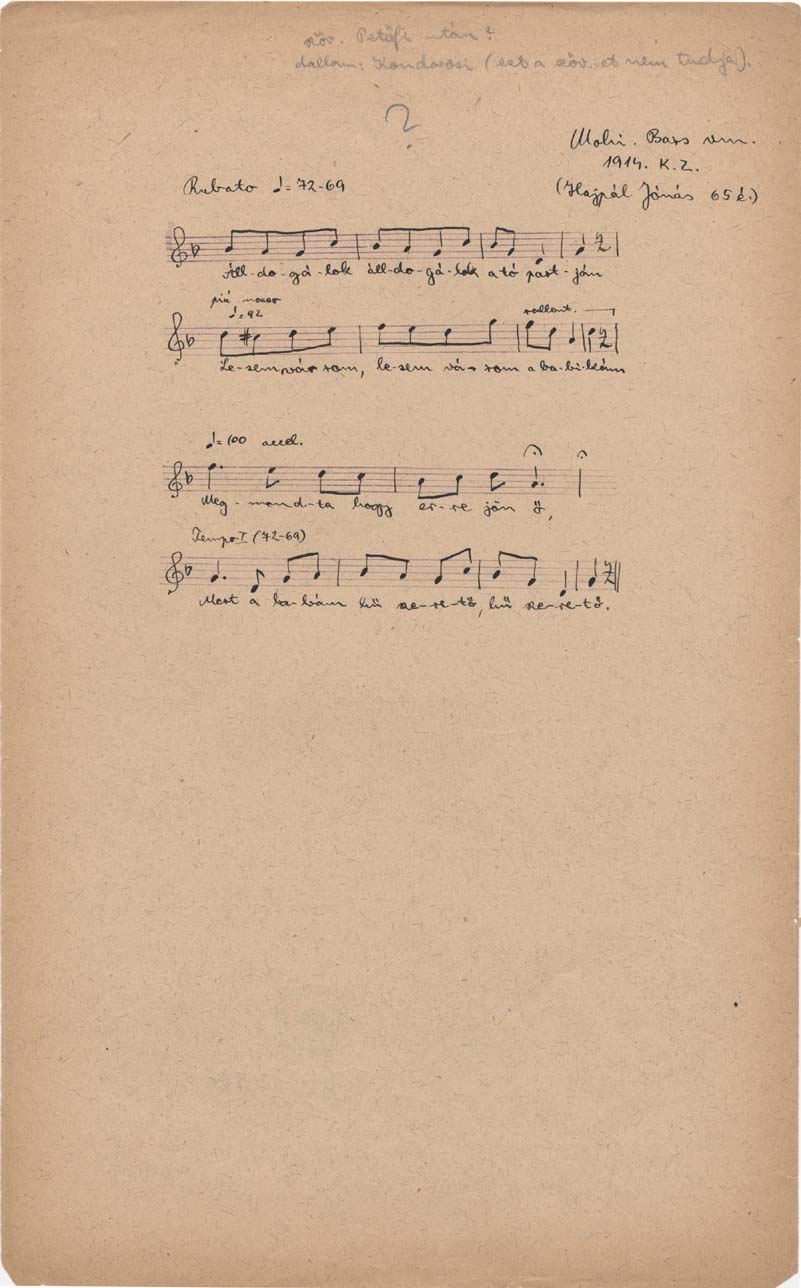 szöv. Petőfi után?
dallam: Kondorosi (ezt a szöv.-et nem tudja).
?
Mohi. Bars vm.
1914. K. Z.
Rubato ♩= 72-69
(Hajpál Jónás 65 é.)
Áll-do-gá-lok áll-do-gá-lok a tó part-ján
più mosso
♩= 92
rallent.
Le-sem vá-rom, le-sem vá-rom a ba-bi-kám
♩= 100 accel.
Meg-mond-ta hogy er-re jön ő,
Tempo I (72-69)
Mert a ba-bám hű sze-re-tő, hű sze-re-tő.